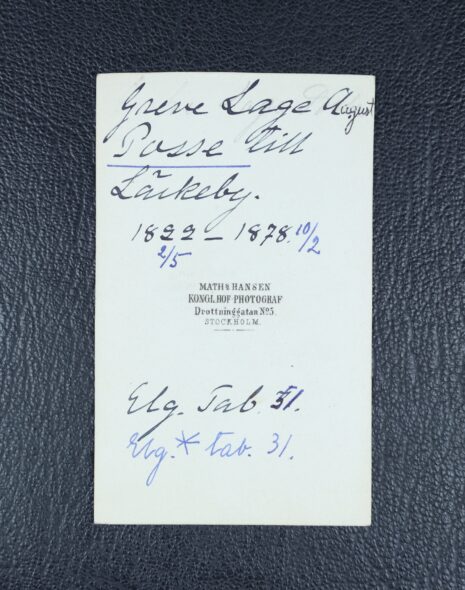 Greve Lage August
Posse till
Läckeby.
1822 – 1878. 10/2
2/5
MATHS HANSEN
KONGL. HOF-PHOTOGRAF
Drottninggatan No 5.
STOCKHOLM.
Elg. Tab. 31.
Elg. * tab. 31.